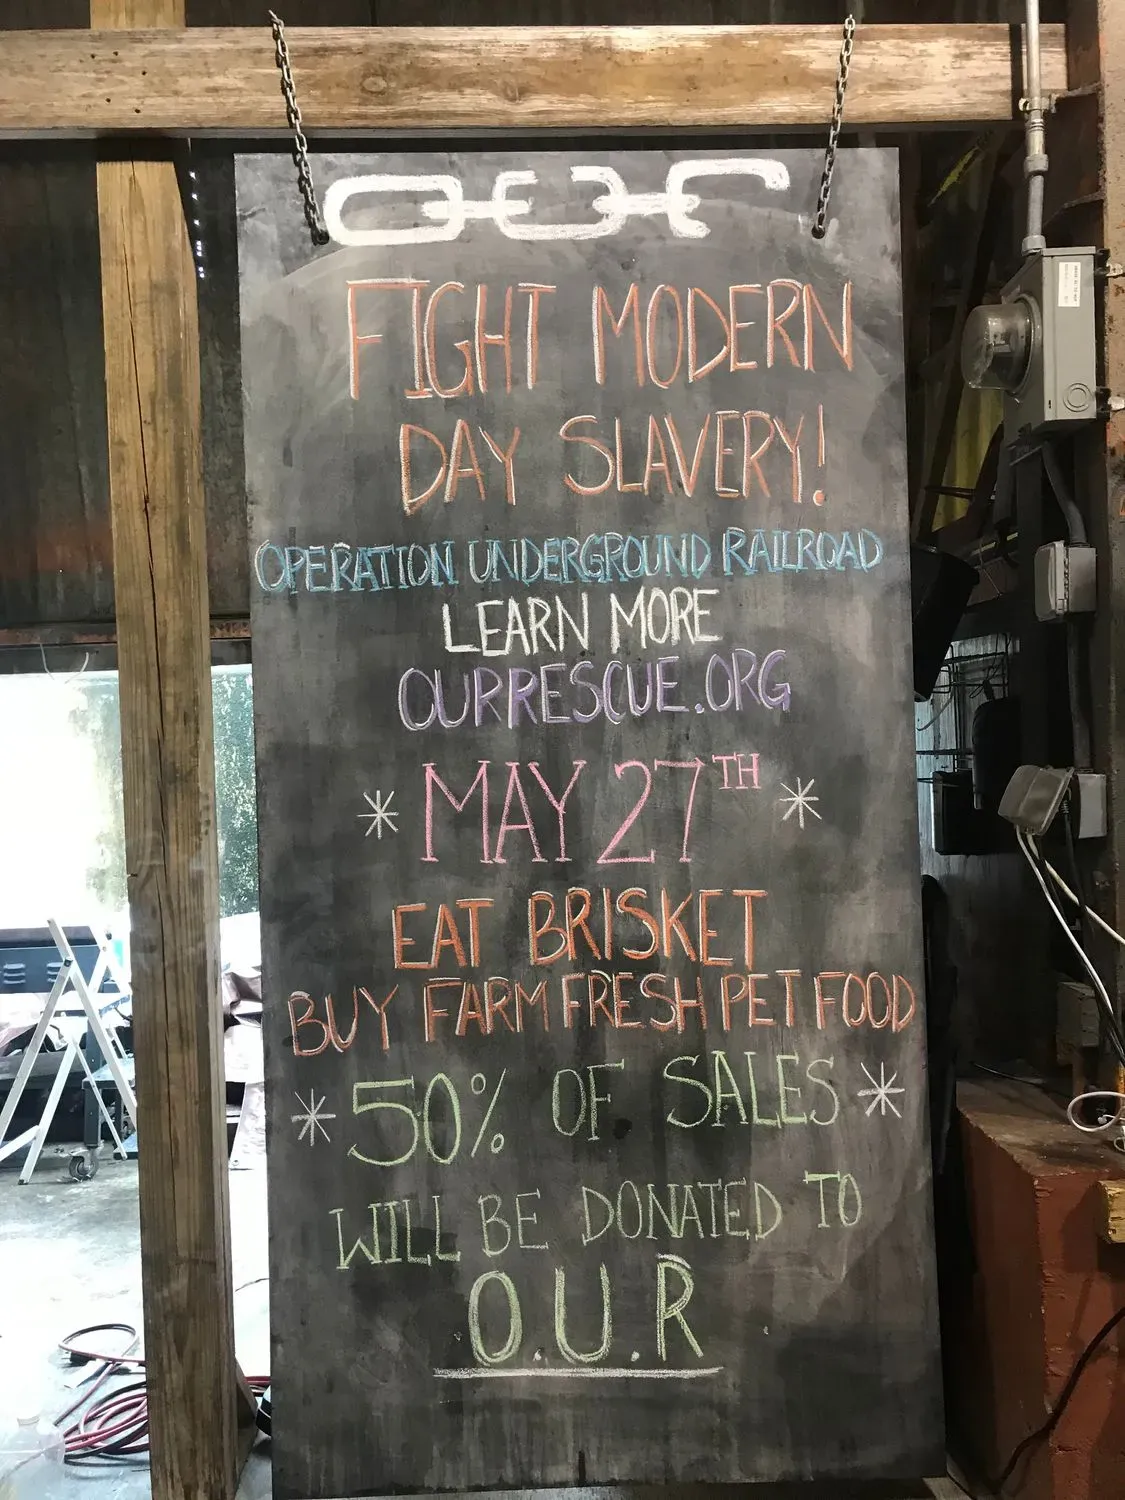 FIGHT MODERN
DAY SLAVERY!
OPERATION UNDERGROUND RAILROAD
LEARN MORE
OURRESCUE.ORG
* MAY 27TH *
EAT BRISKET
BUY FARM FRESH PET FOOD
* 50% OF SALES *
WILL BE DONATED TO
O.U.R